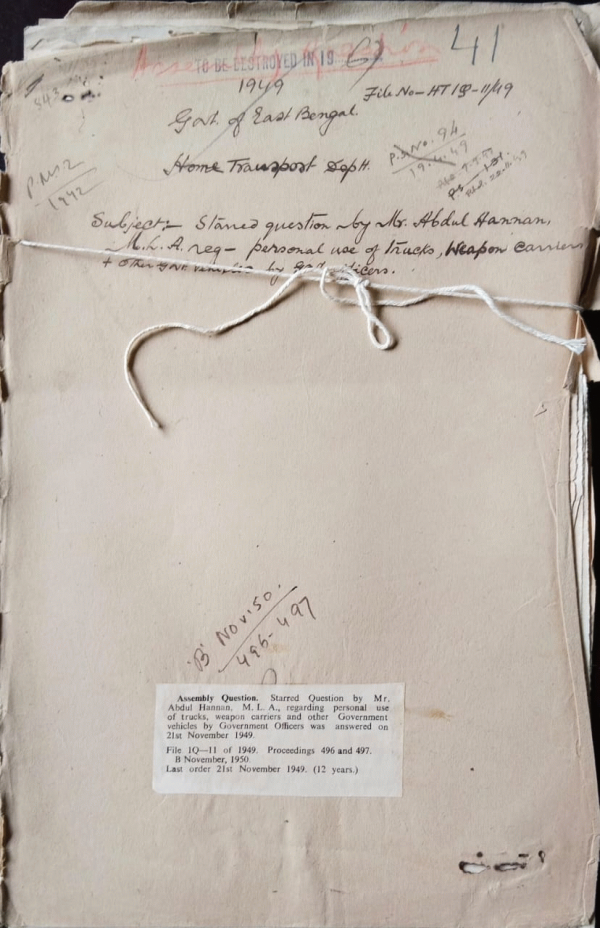 Assembly Question
TO BE DESTROYED IN 19 62
41
1949
File No - HT 1Q-11/49
Govt. of East Bengal.
Home Transport Deptt.
P.S. No. 94
19.4.49
P.M.2
1942
Subject:- Starred question by Mr. Abdul Hannan,
M.L.A. reg- personal use of trucks, Weapon carriers
+ other Govt. vehicles by Govt. officers.
'B' Nov/50.
496-497
Assembly Question. Starred Question by Mr.
Abdul Hannan, M. L. A., regarding personal use
of trucks, weapon carriers and other Government
vehicles by Government Officers was answered on
21st November 1949.
File 1Q—11 of 1949. Proceedings 496 and 497.
B November, 1950.
Last order 21st November 1949. (12 years.)